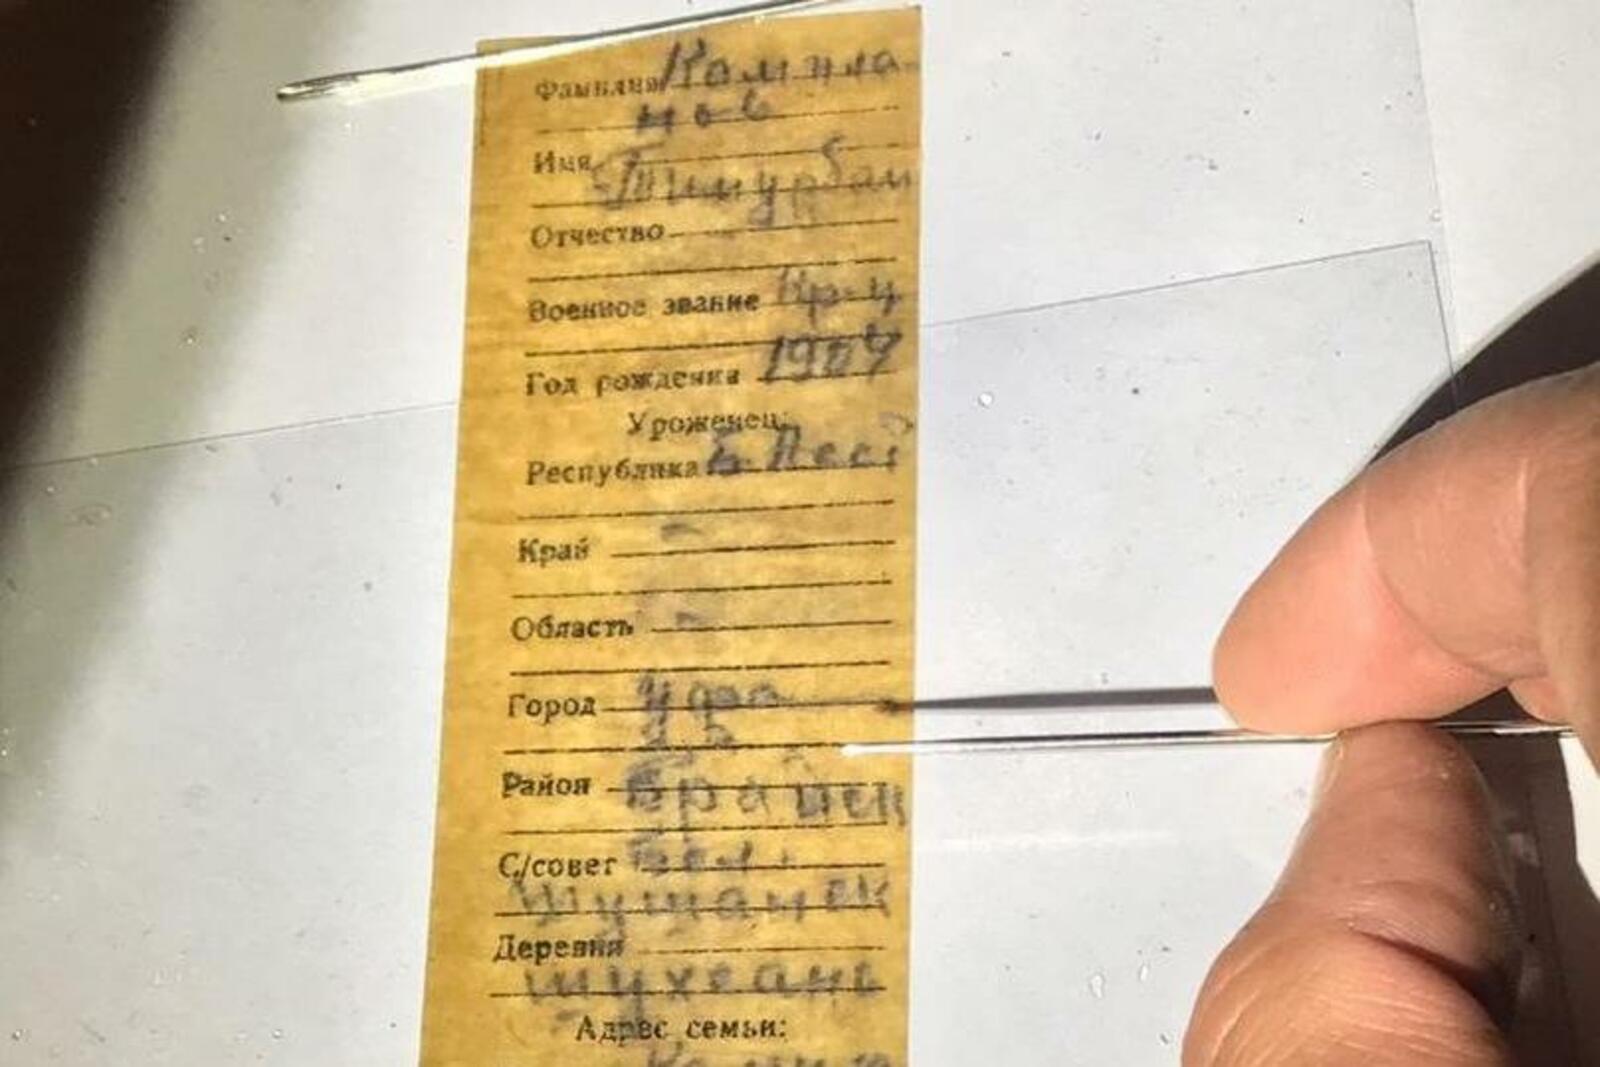 Фамилия Камила-
нов
Имя
Тимурбай
Отчество
Военное звание кр-ц
Год рождения 1907
Уроженец:
Республика Б. Асср
Край -
Область -
Город Уфа
Район
Бирайск
С/совет Бол.
Шушанск
Деревня
Адрес семьи: